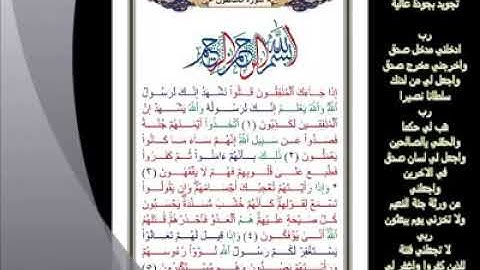 سورة المنافقون
بسم الله الرحمن الرحيم
إِذَا جَاءَكَ الْمُنَافِقُونَ قَالُوا نَشْهَدُ إِنَّكَ لَرَسُولُ
اللَّهِ وَاللَّهُ يَعْلَمُ إِنَّكَ لَرَسُولُهُ وَاللَّهُ يَشْهَدُ إِنَّ
الْمُنَافِقِينَ لَكَاذِبُونَ (١) اتَّخَذُوا أَيْمَانَهُمْ جُنَّةً
فَصَدُّوا عَن سَبِيلِ اللَّهِ إِنَّهُمْ سَاءَ مَا كَانُوا
يَعْمَلُونَ (٢) ذَلِكَ بِأَنَّهُمْ ءَامَنُوا ثُمَّ كَفَرُوا
فَطُبِعَ عَلَى قُلُوبِهِمْ فَهُمْ لَا يَفْقَهُونَ (٣)
* وَإِذَا رَأَيْتَهُمْ تُعْجِبُكَ أَجْسَامُهُمْ وَإِن يَقُولُوا
تَسْمَعْ لِقَوْلِهِمْ كَأَنَّهُمْ خُشُبٌ مُّسَنَّدَةٌ يَحْسَبُونَ
كُلَّ صَيْحَةٍ عَلَيْهِمْ هُمُ الْعَدُوُّ فَاحْذَرْهُمْ قَاتَلَهُمُ
اللَّهُ أَنَّى يُؤْفَكُونَ (٤) وَإِذَا قِيلَ لَهُمْ تَعَالَوْا
يَسْتَغْفِرْ لَكُمْ رَسُولُ اللَّهِ لَوَّوْا رُءُوسَهُمْ
وَرَأَيْتَهُمْ يَصُدُّونَ وَهُم مُّسْتَكْبِرُونَ (٥)
تجويد بجودة عالية
رب
ادخلني مدخل صدق
واخرجني مخرج صدق
واجعل لي من لدنك
سلطانا نصيرا
رب
هب لي حكما
والحقني بالصالحين
واجعل لي لسان صدق
في الاخرين
واجعلني
من ورثة جنة النعيم
ولا تخزني يوم يبعثون
ربي
لا تجعلني فتنة
للذين كفروا واغفر لي